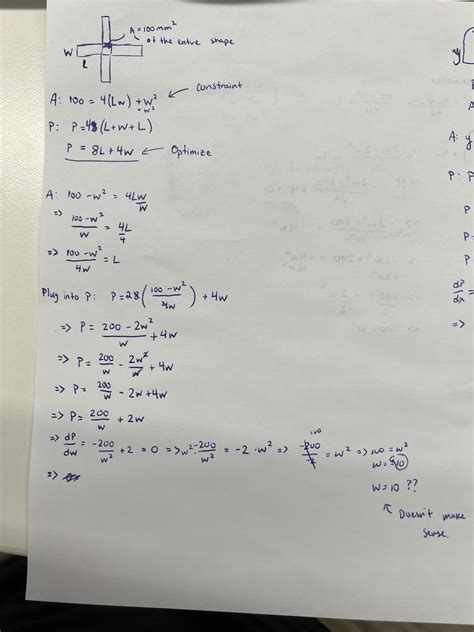 A = 100mm²
of the entire shape
W
L
A: 100 = 4(Lw) + w² ← constraint
w²
P: P = 4(L+W+L)
P = 8L + 4w ← Optimize
A: 100 - w² = 4Lw
w
=> 100 - w² / w = 4L / 4
=> 100 - w² / 4w = L
Plug into P: P = 28 (100 - w² / 4w) + 4w
=> P = 200 - 2w² / w + 4w
=> P = 200 / w - 2w² / w + 4w
=> P = 200 / w - 2w + 4w
=> P = 200 / w + 2w
=> dP / dw = -200 / w² + 2 = 0 => w² · -200 / w² = -2 · w² => -200 / -2 = w² => 100 = w²
100
w = 10
=>
w = 10 ??
↑ Doesn't make
sense.
y
A: y
P: P
P
P
P
dP / dx =
=>